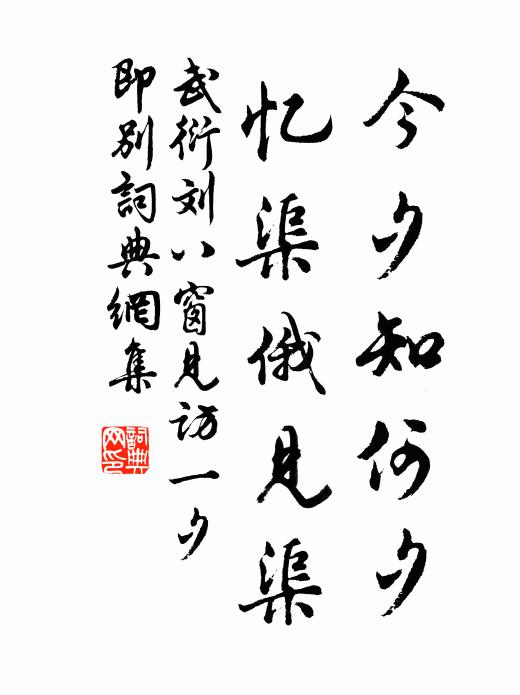 今夕知何夕
忆渠俄见渠
武衍刘八窗见访一夕
即别詞典網集
詞典网印